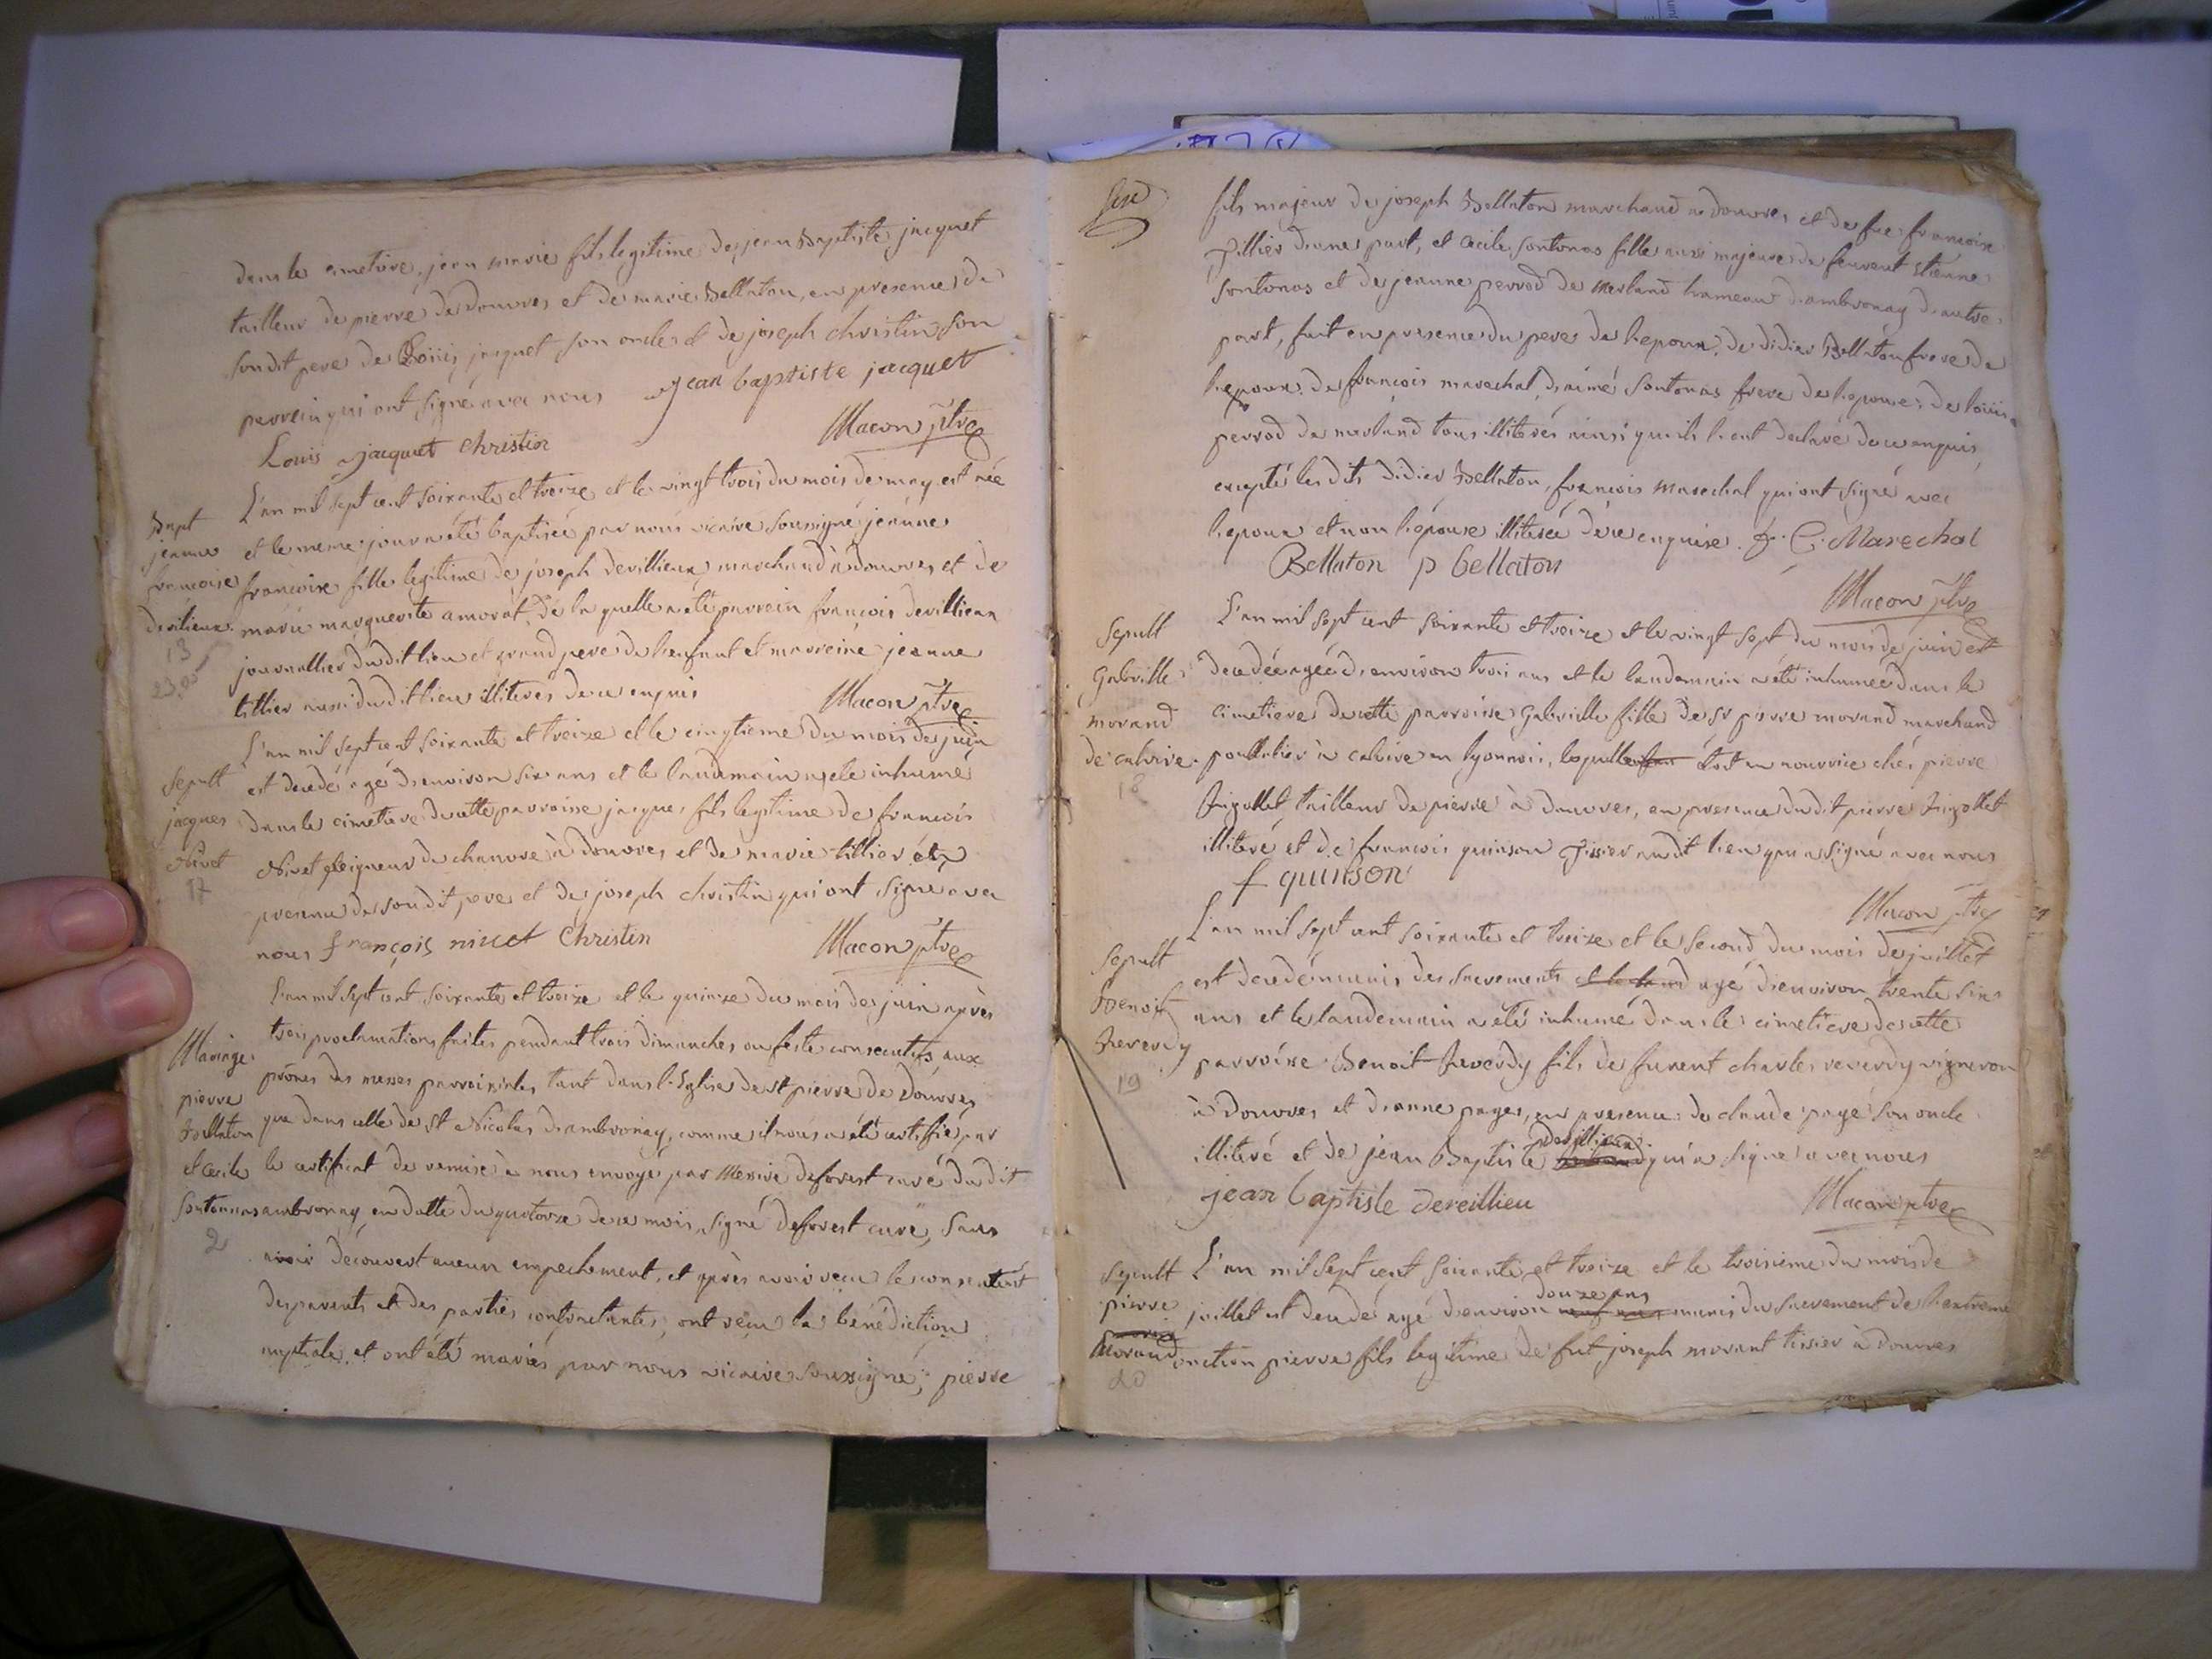 dans le cimetiere, jean marie fils legitime de jean Baptiste jacquet
tailleur de pierre de Douvres et de marie Bellaton, en presence de
sondit pere de Loüis jacquet son oncle et de joseph christin son
parrein qui ont signé avec nous jean baptiste jacquet
Louis jacquet christin Macon ptre
Bapt
jeanne
francoise
devilieux
13
L'an mil sept cent soixante et treize et le vingt trois du mois de may est née
et le meme jour a été baptisée par nous vicaire soussigné jeanne
francoise fille legitime de joseph devillieux marchand à douvres, et de
marie marguerite amorat, de la quelle a été parrein francois devillieux
journallier dudit lieu et grand pere de l'enfant et marreine jeanne
tillier aussi dudit lieu illiterés de ce enquis Macon ptre
Sepult
jacques
Nivet
17
L'an mil sept cent soixante et treize et le cinqtieme du mois de juin
est decedé agé d'environ six ans et le lendemain a été inhumé
dans le cimetiere de cette parroisse jacques fils legitime de francois
Nivet peigneur de chanvre à douvres et de marie tillier en
presence de sondit pere et de joseph christin qui ont signé avec
nous françois nivet Christin Macon ptre
Mariage
pierre
Bellaton
et Cecile
Sontonnas
2
L'an mil sept cent soixante et treize et le quinze du mois de juin après
trois proclamations faites pendant trois dimanches ou feste consecutifs aux
prônes des messes parroissiales tant dans l'Eglise de st pierre de Douvres
que dans celle de St Nicolas d'ambronay, comme il nous a été certifié par
le certificat de remise à nous envoyé par Messire deforest curé dudit
ambronay en datte du quatorze de ce mois, signé deforest curé, sans
avoir découvert aucun empechement, et après avoir recu le consentement
des parents et des parties contractantes, ont recu la bénédiction
nuptiale et ont été mariés par nous vicaire soussigné; pierre
fils majeur de joseph Bellaton marchand a douvres et de fue francoise
Tillier d'une part, et Cecile Sontonas fille aussi majeure de feu vent etienne
Sontonas et de jeanne perrod de merland hameau d'ambronay d'autre
part, fait en presence du pere de l'epoux, de didier Bellaton frere de
l'epoux, de francois marechal, d'aimé Sontonas frere de l'epouse, de loüis
perrod de merland tous illiterés ainsi qu'ils l'ont declaré de ce enquis,
excepté lesdits didier Bellaton, francois marechal qui ont signé avec
l'epoux et non l'épouse illiterée de ce enquise. f. C. Marechal
Bellaton p bellaton
Macon ptre
Sepult
Gabrielle
morand
de calvire
18
L'an mil sept cent soixante et treize et le vingt sept du mois de juin est
decedée agée d'environ trois ans et le lendemain a été inhumée dans le
cimetiere de cette parroisse Gabrielle fille de Sr pierre morand marchand
poullalier à calvire en lyonnois, laquelle étoit en nourrice chés pierre
Jugollet, tailleur de pierre à douvres, en presence dudit pierre Jugollet
illiteré et de francois quinson Tissier audit lieu qui a signé avec nous
f quinson
Macon ptre
Sepult
Benoit
Reverdy
19
L'an mil sept cent soixante et treize et le second du mois de juillet
est decedé munis des sacrements agé d'environ trente six
ans et le lendemain a été inhumé dans le cimetiere de cette
parroisse Benoit Reverdy fils de fuvent charles reverdy vigneron
à Douvres et d'anne pages, en presence de claude pagé son oncle
illiteré et de jean Baptiste devillieux qui a signé avec nous
jean baptiste devillieu Macon ptre
Sepult
pierre
Morand
20
L'an mil sept cent soixante et treize et le troisieme du mois de
juillet est decedé agé d'environ douze ans munis du sacrement de l'extreme
onction pierre fils legitime de fut joseph morant tissier à Douvres